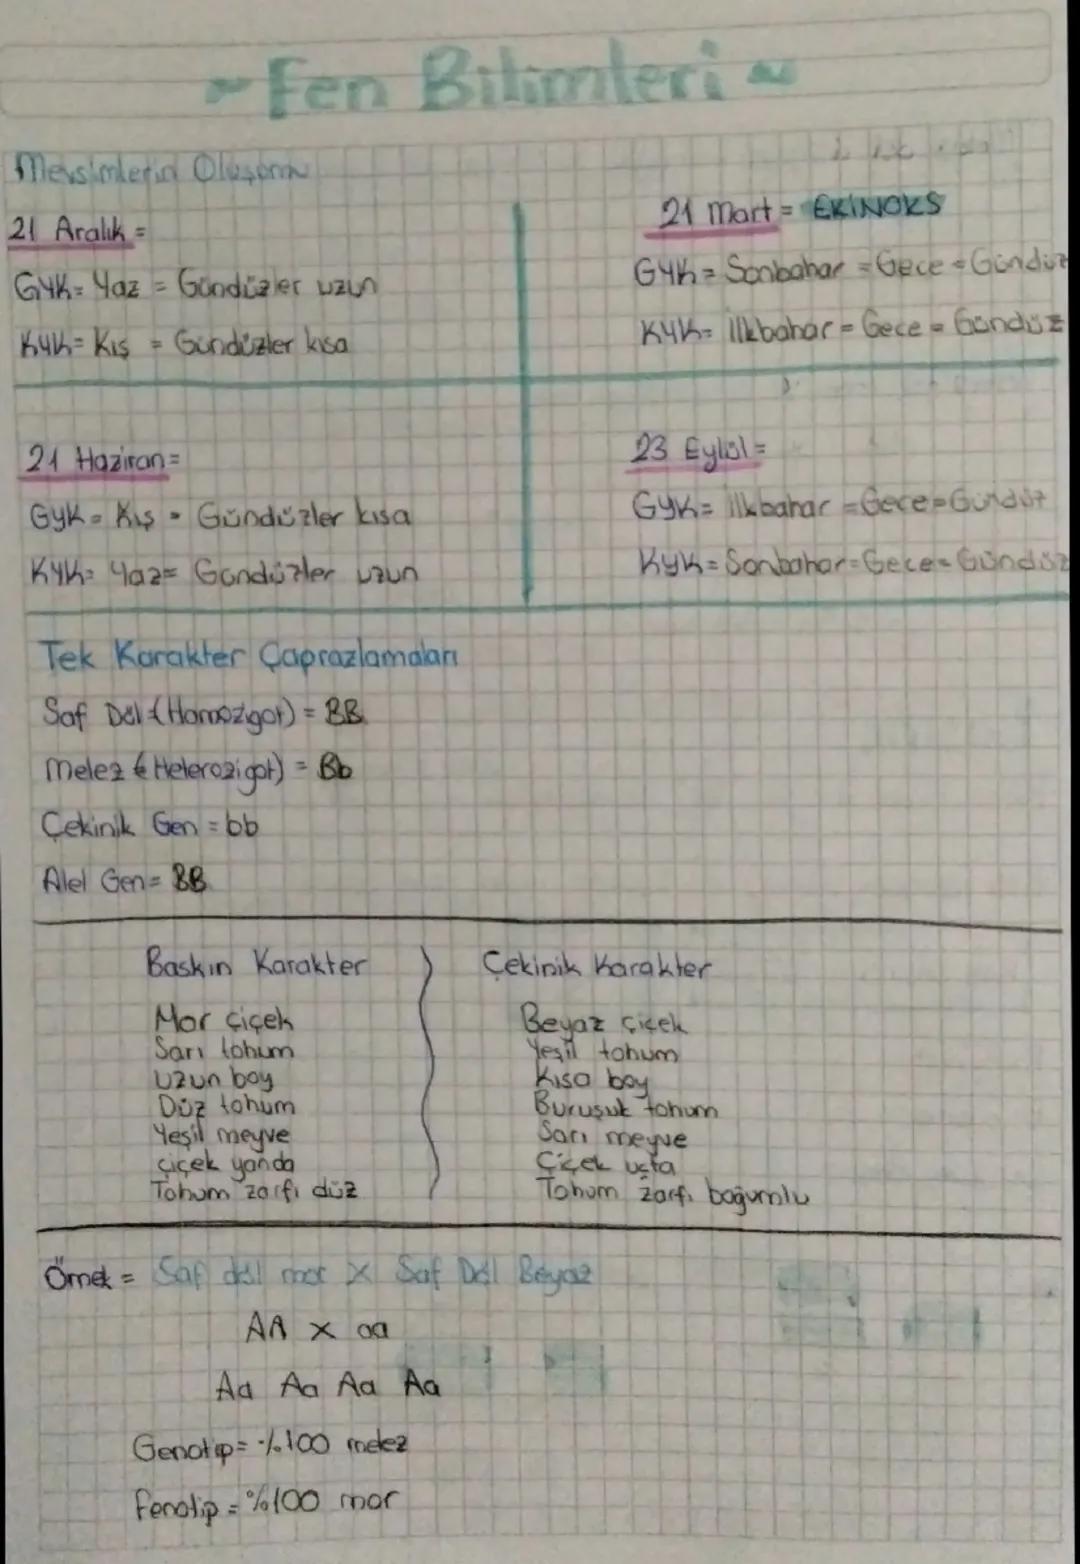 ~ Fen Bilimleri ~
Mevsimlerin Oluşumu
21 Aralık =
GYK= Yaz = Gündüzler uzun
KYK= Kış = Gündüzler kısa
21 Mart = EKİNOKS
GYK= Sonbahar = Gece = Gündüz
KYK= İlkbahar = Gece = Gündüz
21 Haziran=
GYK= Kış = Gündüzler kısa
KYK= Yaz= Gündüzler uzun
23 Eylül =
GYK= İlkbahar =Gece=Gündüz
KYK= Sonbahar=Gece= Gündüz
Tek Karakter Çaprazlamaları
Saf Döl (Homozigot) = BB
Melez (Heterozigot) = Bb
Çekinik Gen = bb
Alel Gen= BB
Baskın Karakter
Mor çiçek
Sarı tohum
Uzun boy
Düz tohum
Yeşil meyve
Çiçek yanda
Tohum zarfı düz
Çekinik Karakter
Beyaz çiçek
Yeşil tohum
Kısa boy
Buruşuk tohum
Sarı meyve
Çiçek uçta
Tohum zarfı boğumlu
Örnek = Saf döl mor X Saf Döl Beyaz
AA X aa
Aa Aa Aa Aa
Genotip= %100 melez
Fenotip = %100 mor